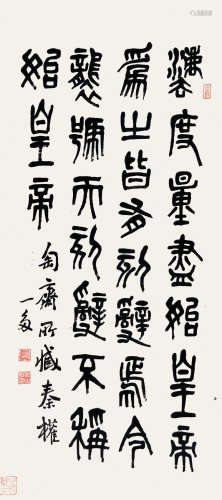 灋度量盡始皇帝
爲之皆有刻辤焉今
襲號而刻辤不稱
始皇帝
匋齋所臧秦權
一多